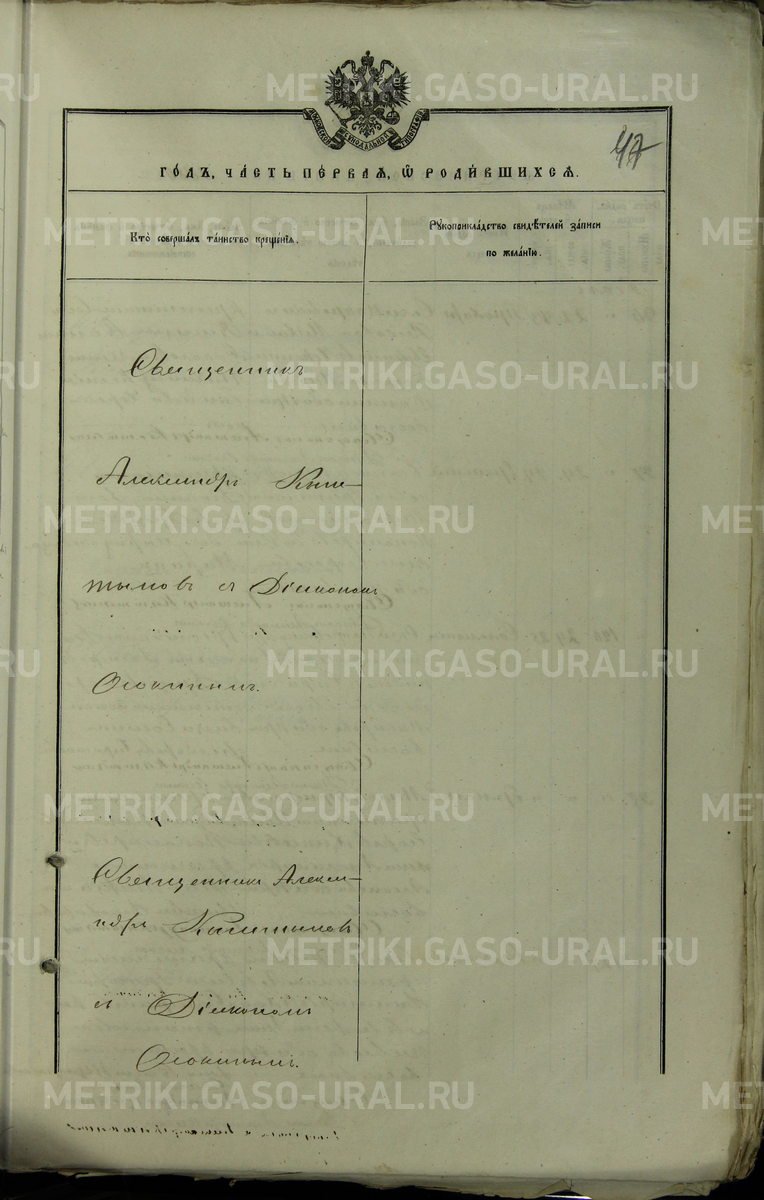 METRIKI.GASO-URAL.RU
47
ГО́ДЪ, ЧА́СТЬ ПЕ́РВАѦ, Ѽ РОДИ́ВШИХСѦ.
Кто̀ соверша́лъ та́инство креще́нїѧ.
Рꙋкоприкла́дство свидѣ́телей за́писи
по жела́нїю.
Священникъ
Александръ Кыш-
тымовъ съ Діакономъ
Осокинымъ.
Священникъ Алексан-
ндръ Кыштымовъ
съ Діакономъ
Осокинымъ.